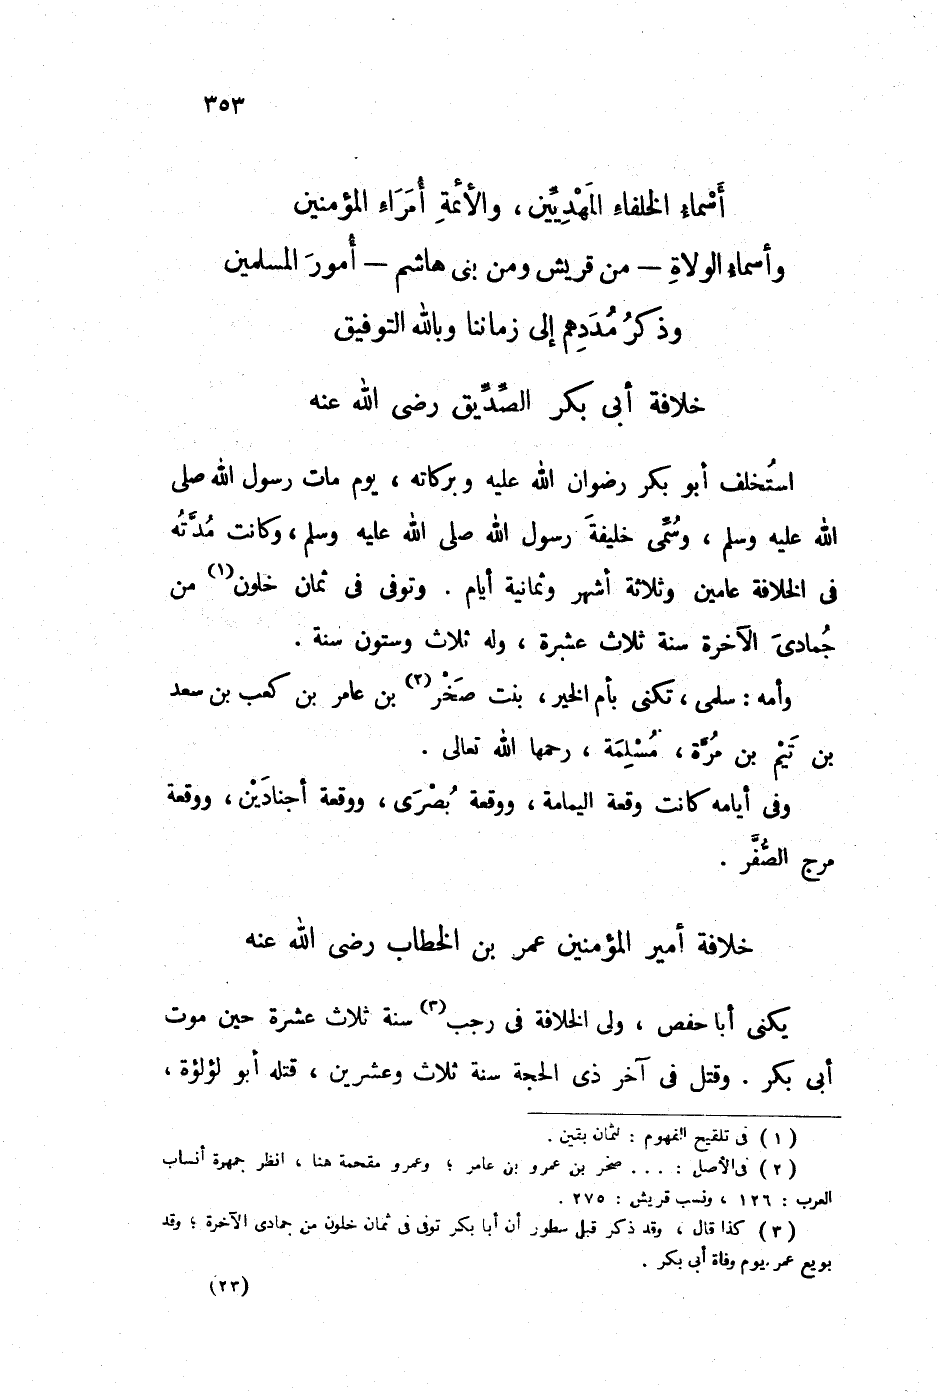 ٣٥٣
أَسْماءِ الخلفاء المَهْدِيِّين ، والأئمةِ أُمَرَاء المؤمنين
وأسماء الولاةِ – من قريش ومن بنى هاشم – أُمورَ المسلمين
وذكرُ مُدَدِهِم إلى زماننا وبالله التوفيق
خلافة أبى بكر الصِّدِّيق رضى الله عنه
استُخلف أبو بكر رضوان الله عليه وبركاته ، يوم مات رسول الله صلى
الله عليه وسلم ، وسُمِّى خليفةَ رسول الله صلى الله عليه وسلم ، وكانت مُدَّتُه
فى الخلافة عامين وثلاثة أشهر وثمانية أيام . وتوفى فى ثمان خلون(١) من
جُمادىَ الآخرة سنة ثلاث عشرة ، وله ثلاث وستون سنة .
وأمه : سلمى ، تكنى بأم الخير ، بنت صَخْر(٢) بن عامر بن كعب بن سعد
بن تَيْم بن مُرَّة ، مُسْلِمَة ، رحمها الله تعالى .
وفى أيامه كانت وقعة اليمامة ، ووقعة بُصْرَى ، ووقعة أجنادَيْن ، ووقعة
مرج الصُّفَّر .
خلافة أمير المؤمنين عمر بن الخطاب رضى الله عنه
يكنى أبا حفص ، ولى الخلافة فى رجب(٣) سنة ثلاث عشرة حين موت
أبى بكر . وقتل فى آخر ذى الحجة سنة ثلاث وعشرين ، قتله أبو لؤلؤة ،
( ١ ) فى تلقيح الفهوم : لثمان بقين .
( ٢ ) فى الأصل : . . . صخر بن عمرو بن عامر ؛ وعمرو مقحمة هنا ، انظر جمهرة أنساب
العرب : ١٢٦ ، ونسب قريش : ٢٧٥ .
( ٣ ) كذا قال ، وقد ذكر قبل سطور أن أبا بكر توفى فى ثمان خلون من جمادى الآخرة ؛ وقد
بويع عمر يوم وفاة أبى بكر .
(٢٣)